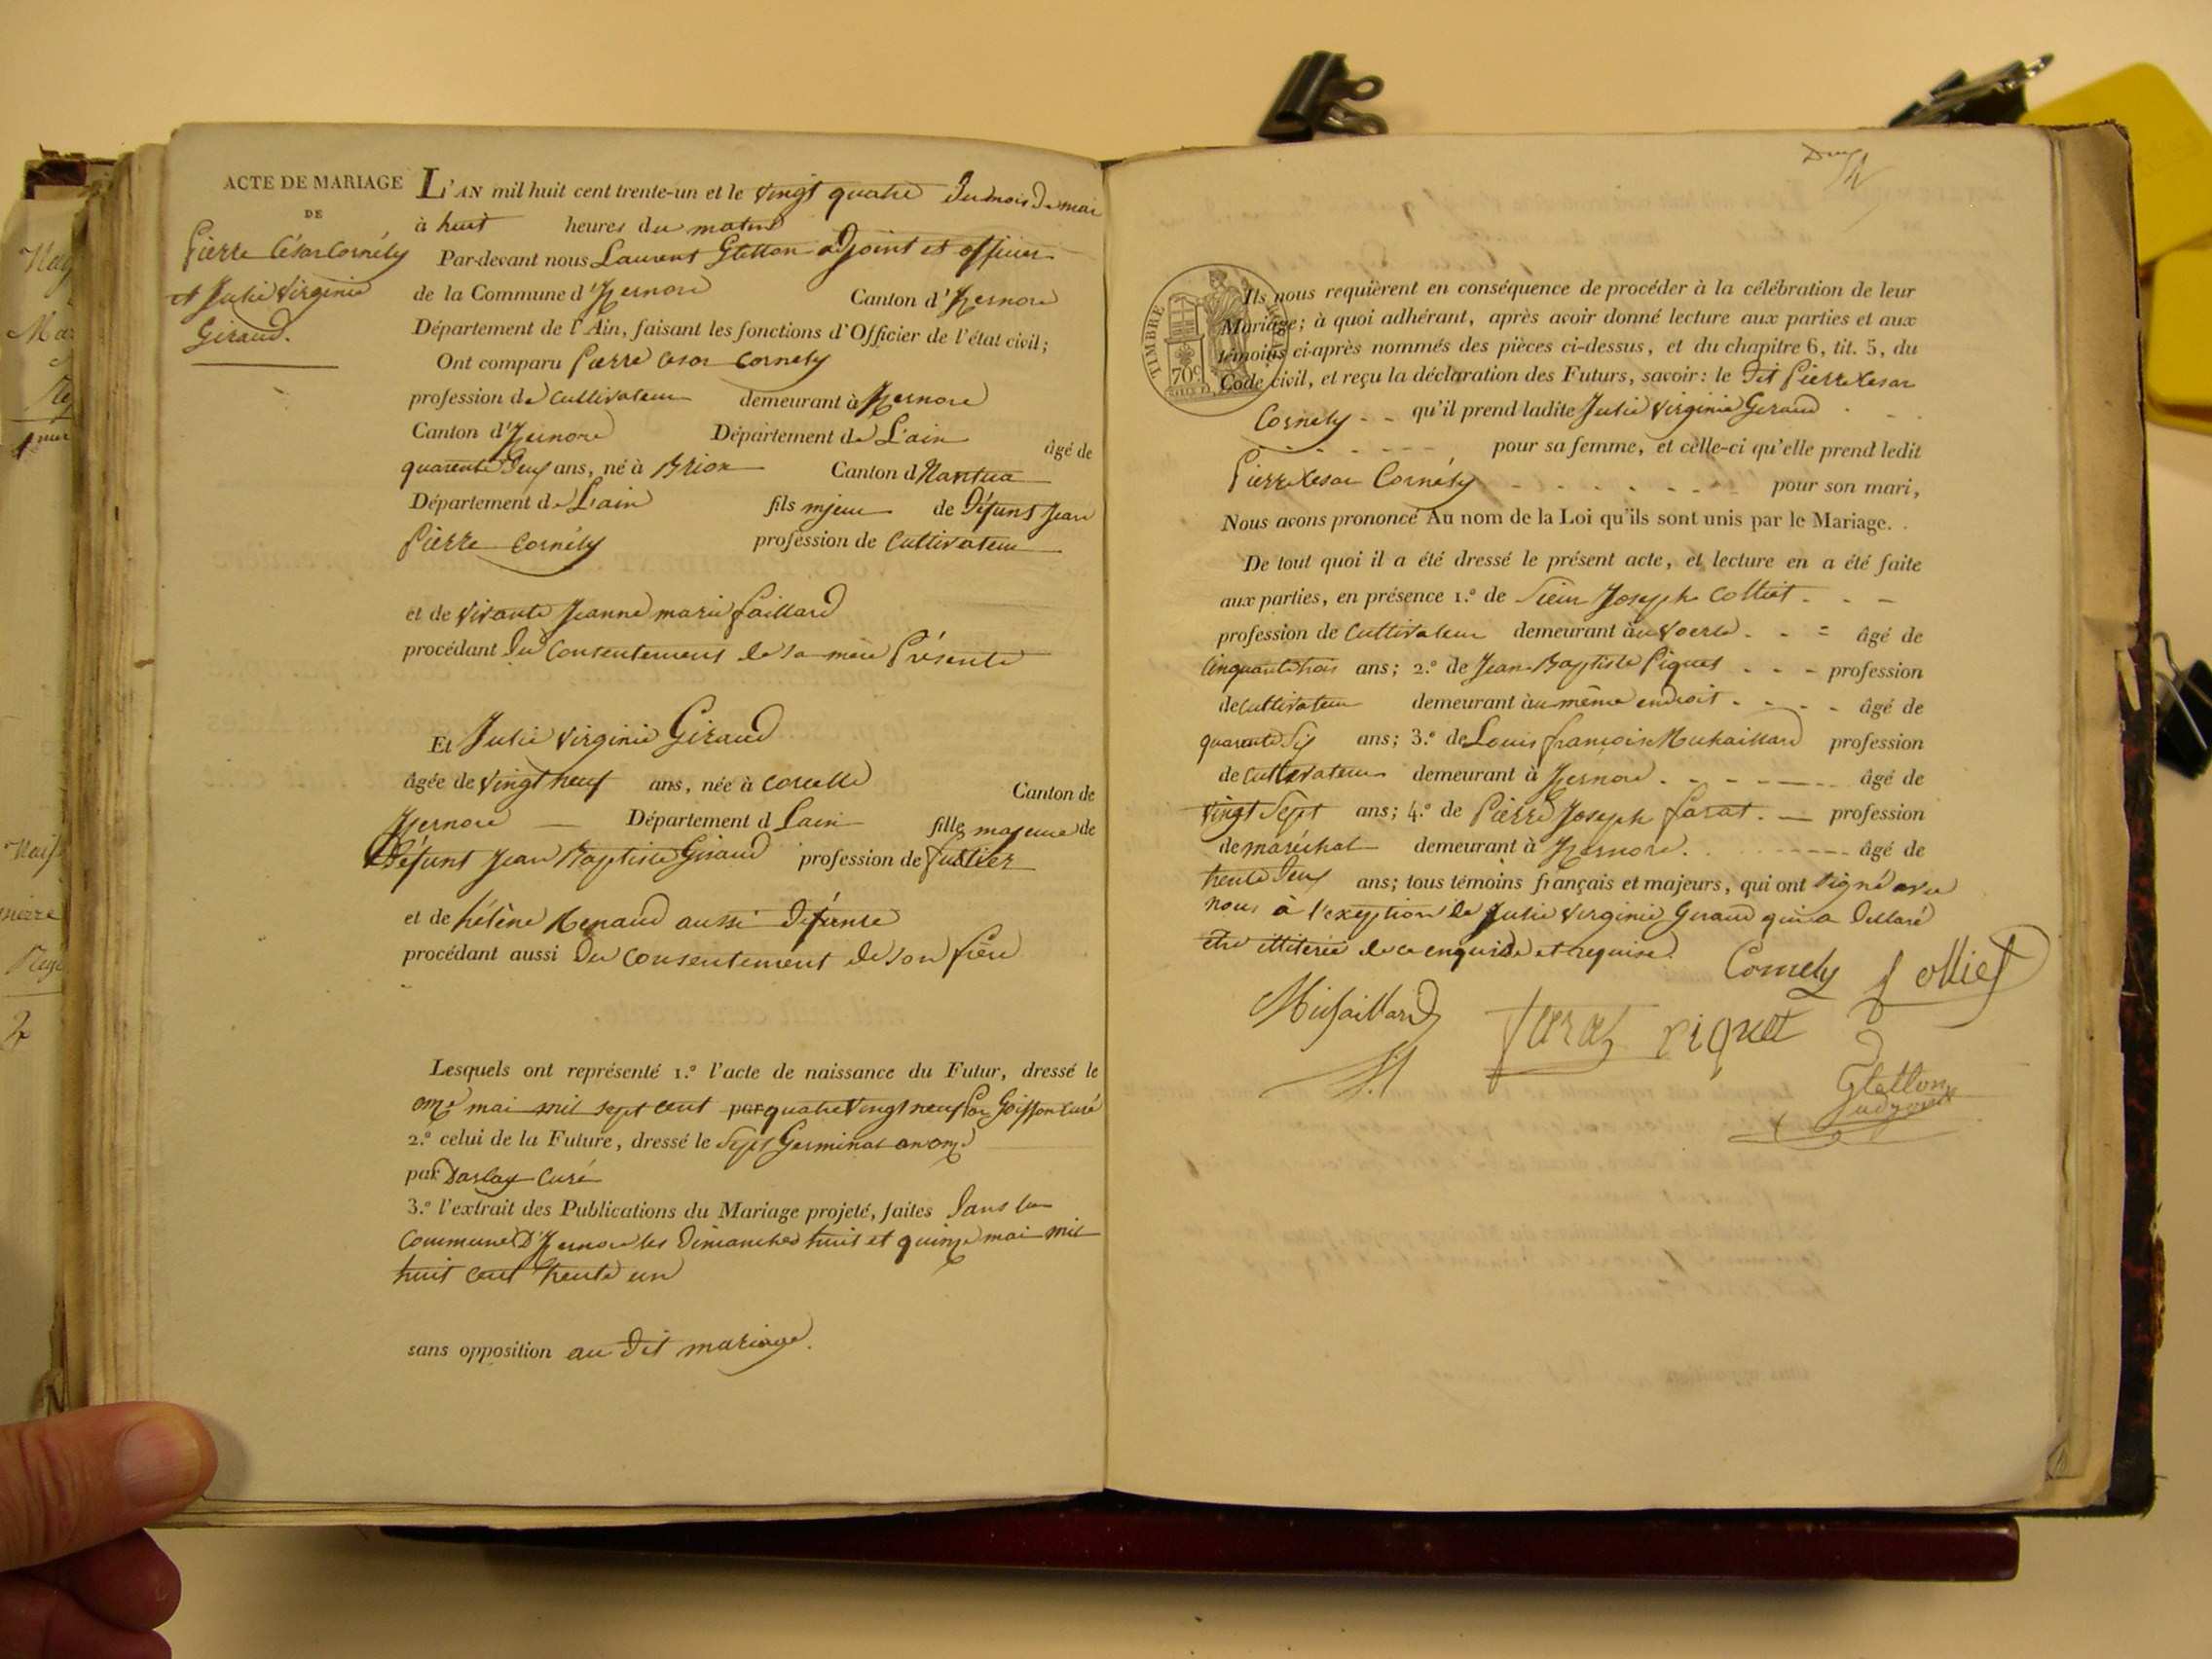 ACTE DE MARIAGE
DE
Pierre César Cornély
et Julie Virginie
Giraud.
L'AN mil huit cent trente-un et le vingt quatre du mois de mai
à huit heures du matin
Par-devant nous Laurent Gletton adjoint et officier
de la Commune d'Izernore Canton d'Izernore
Département de l'Ain, faisant les fonctions d'Officier de l'état civil;
Ont comparu Pierre Cesar Cornely
profession de Cultivateur demeurant à Izernore
Canton d'Izernore Département de L'ain âgé de
quarente deux ans, né à Brion Canton d Nantua
Département de L'ain fils mjeur de Défunt Jean
Pierre Cornély profession de Cultivateur
et de vivante Jeanne marie faillard
procédant du Consentement de sa mère Présente
Et Julie Virginie Giraud
âgée de vingt neuf ans, née à Corcelle Canton de
Izernore Département d Lain fille majeure de
Défunt Jean Baptiste Giraud profession de
et de hélène Renaud aussi défunte
procédant aussi Du Consentement de son frère
Lesquels ont représenté 1.º l'acte de naissance du Futur, dressé le
onze mai mil sept cent quatre vingt neuf Par Goiffon Curé
2.º celui de la Future, dressé le Sept Germinal an onze
par Darlay Curé
3.º l'extrait des Publications du Mariage projeté, faites dans la
Commune D'Izernore les Dimanches huit et quinze mai mil
huit cent trente un
sans opposition au dit mariage.
TIMBRE ROYAL
70c
Ils nous requièrent en conséquence de procéder à la célébration de leur
Mariage; à quoi adhérant, après avoir donné lecture aux parties et aux
témoins ci-après nommés des pièces ci-dessus, et du chapitre 6, tit. 5, du
Code civil, et reçu la déclaration des Futurs, savoir: le dit Pierre Cesar
Cornely - - qu'il prend ladite Julie Virginie Geraud
pour sa femme, et celle-ci qu'elle prend ledit
Pierre Cesar Cornély pour son mari,
Nous avons prononcé Au nom de la Loi qu'ils sont unis par le Mariage.
De tout quoi il a été dressé le présent acte, et lecture en a été faite
aux parties, en présence 1.º de Sieur Joseph Colliet
profession de Cultivateur demeurant au Voerle âgé de
Cinquante trois ans; 2.º de Jean-Baptiste Piquet profession
de Cultivateur demeurant au même endroit âgé de
quarente Six ans; 3.º de Louis françois Muhaillard profession
de Cultivateur demeurant à Izernore âgé de
vingt Sept ans; 4.º de Pierre Joseph farat profession
de maréchal demeurant à Izernore âgé de
trente Deux ans; tous témoins français et majeurs, qui ont signé avec
nous à l'exeption de Julie Virginie Geraud qui a Dellaré
etre illiterée de ce enquise et requise.
Cornely
Colliet
farat
piquet
Gletton
adjoint